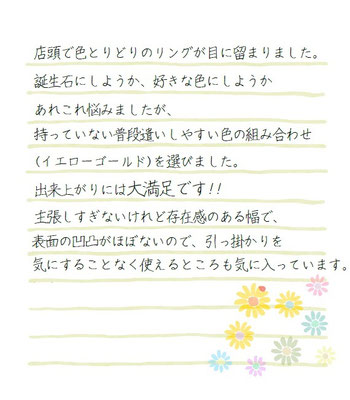 店頭で色とりどりのリングが目に留まりました。
誕生石にしようか、好きな色にしようか
あれこれ悩みましたが、
持っていない普段遣いしやすい色の組み合わせ
(イエローゴールド)を選びました。
出来上がりには大満足です!!
主張しすぎないけれど存在感のある幅で、
表面の凹凸がほぼないので、引っ掛かりを
気にすることなく使えるところも気に入っています。